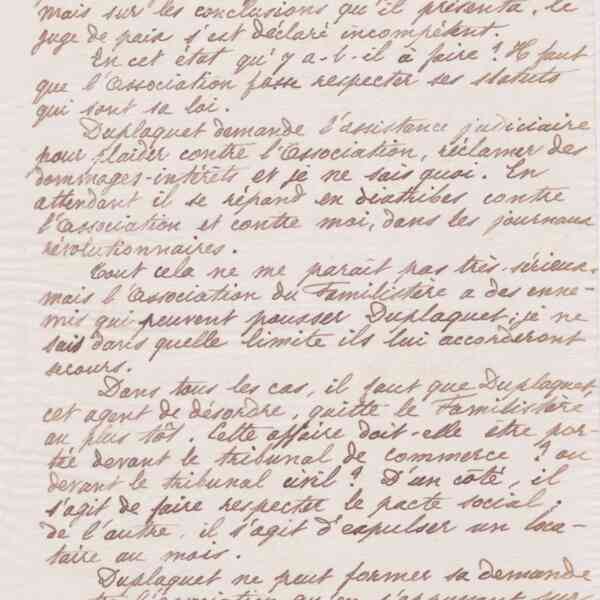 mais sur les conclusions qu'il présenta, le
juge de paix s'est déclaré incompétent.
En cet état qu'y a-t-il à faire ? Il faut
que l'Association fasse respecter ses statuts
qui sont sa loi.
Duplaquet demande l'assistance judiciaire
pour plaider contre l'Association, réclamer des
dommages-intérêts et je ne sais quoi. En
attendant il se répand en diatribes contre
l'Association et contre moi, dans les journaux
révolutionnaires.
Tout cela ne me paraît pas très-sérieux
mais l'Association du Familistère a des enne-
mis qui peuvent pousser Duplaquet; je ne
sais dans quelle limite ils lui accorderont
secours.
Dans tous les cas, il faut que Duplaquet,
cet agent de désordre, quitte le Familistère
au plus tôt. Cette affaire doit-elle être por-
tée devant le tribunal de commerce ? ou
devant le tribunal civil ? D'un côté, il
s'agit de faire respecter le pacte social;
de l'autre, il s'agit d'expulser un loca-
taire au mois.
Duplaquet ne peut former sa demande
l'association qu'en s'appuyant sur